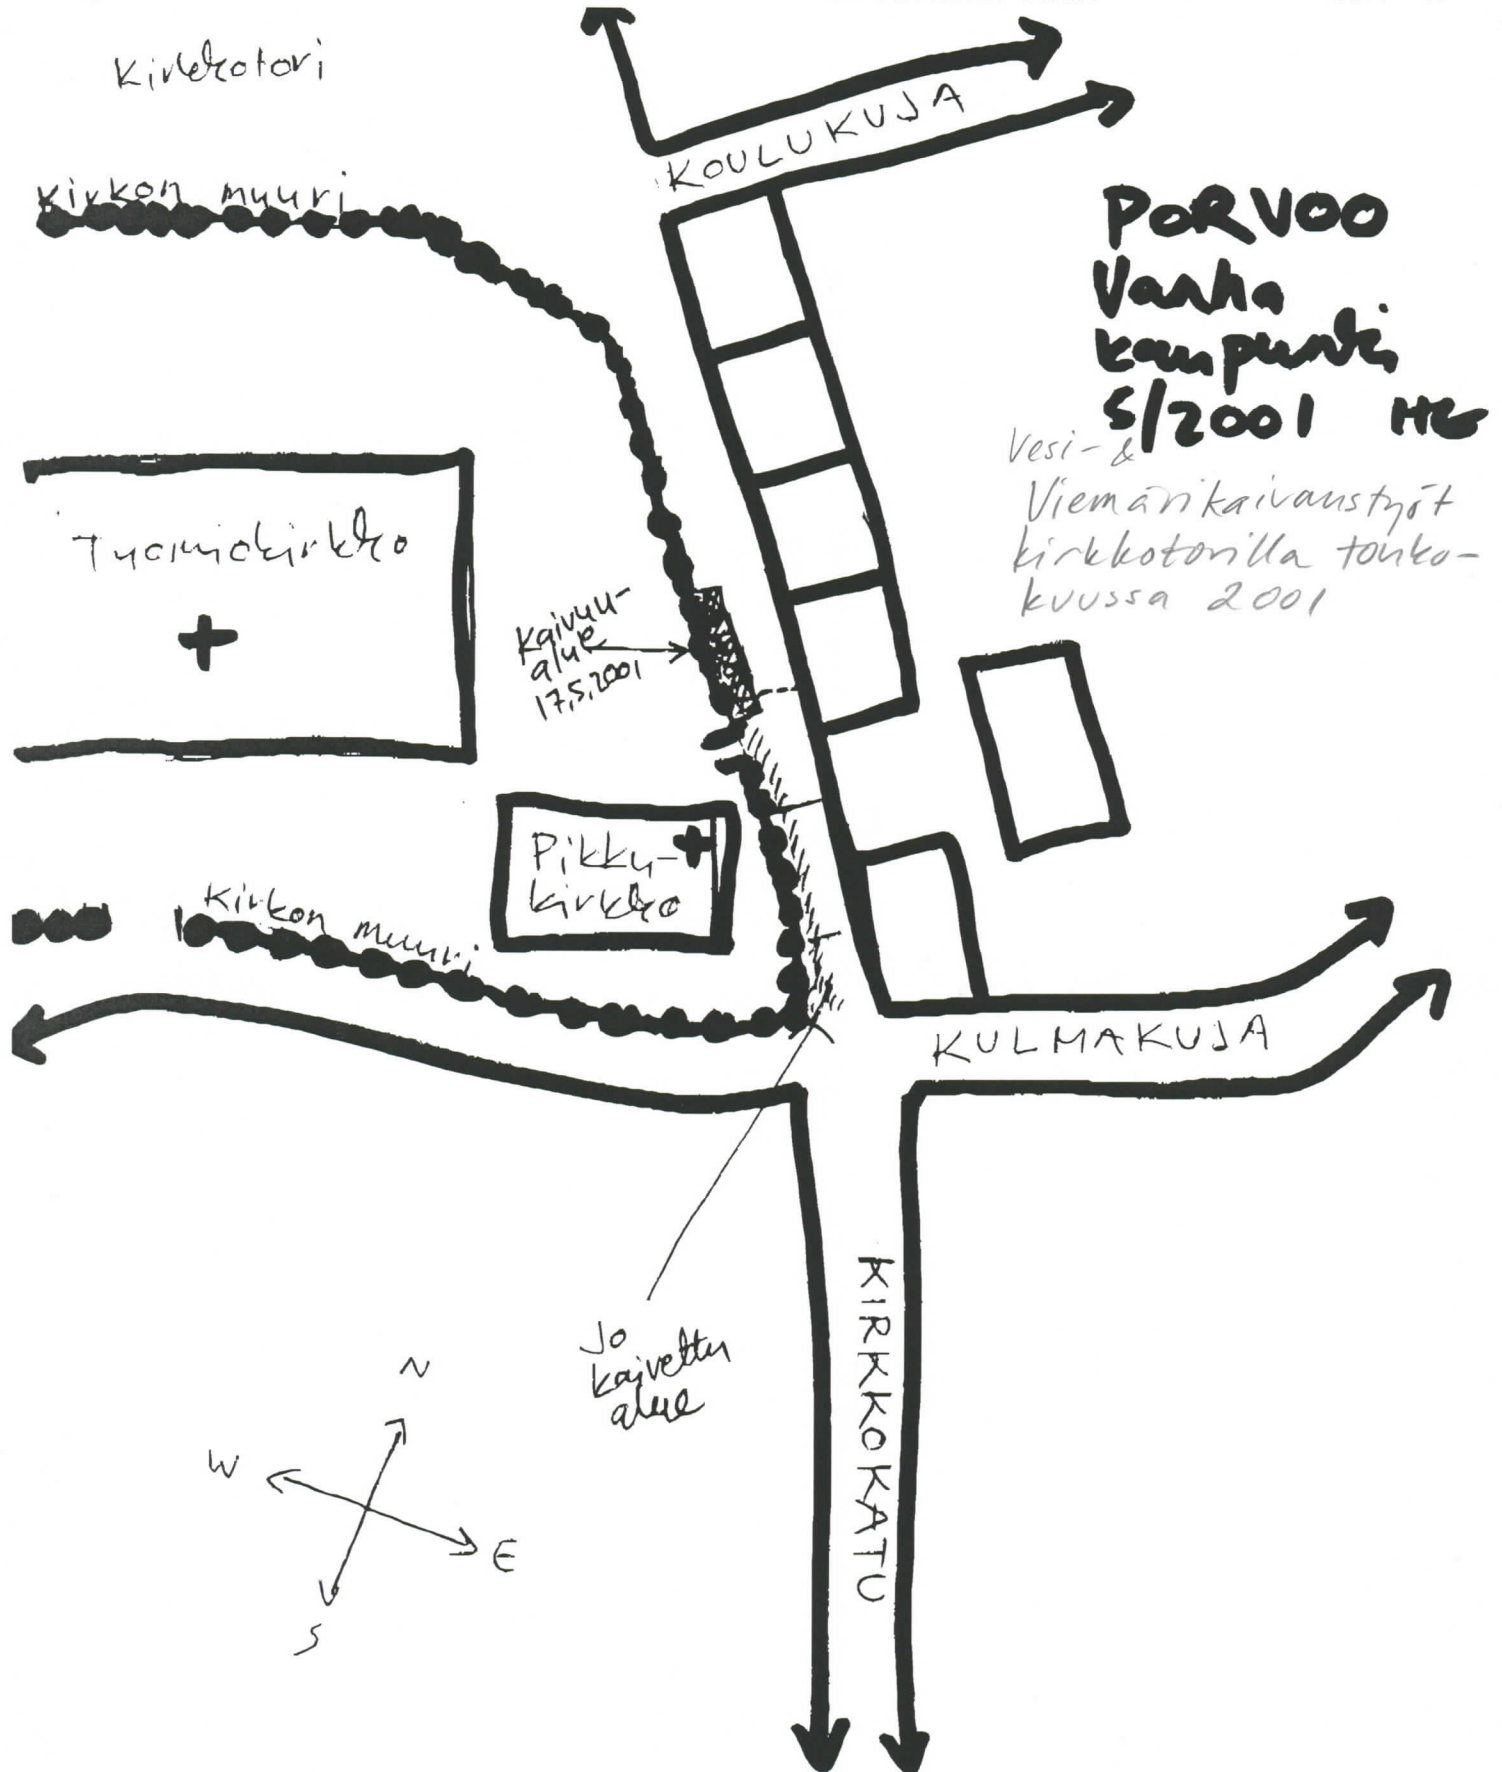 Kirkkotori
Kirkon muuri
KOULUKUJA
PORVOO
Vanha
kaupunki
5/2001 HG
Vesi- &
Viemärikaivaustyöt
kirkkotorilla touko-
kuussa 2001
Tuomiokirkko
Kaivuu-
alue
17.5.2001
Pikku-
kirkko
Kirkon muuri
KULMAKUJA
KIRKKOKATU
Jo
kaivettu
alue
N
W
E
S